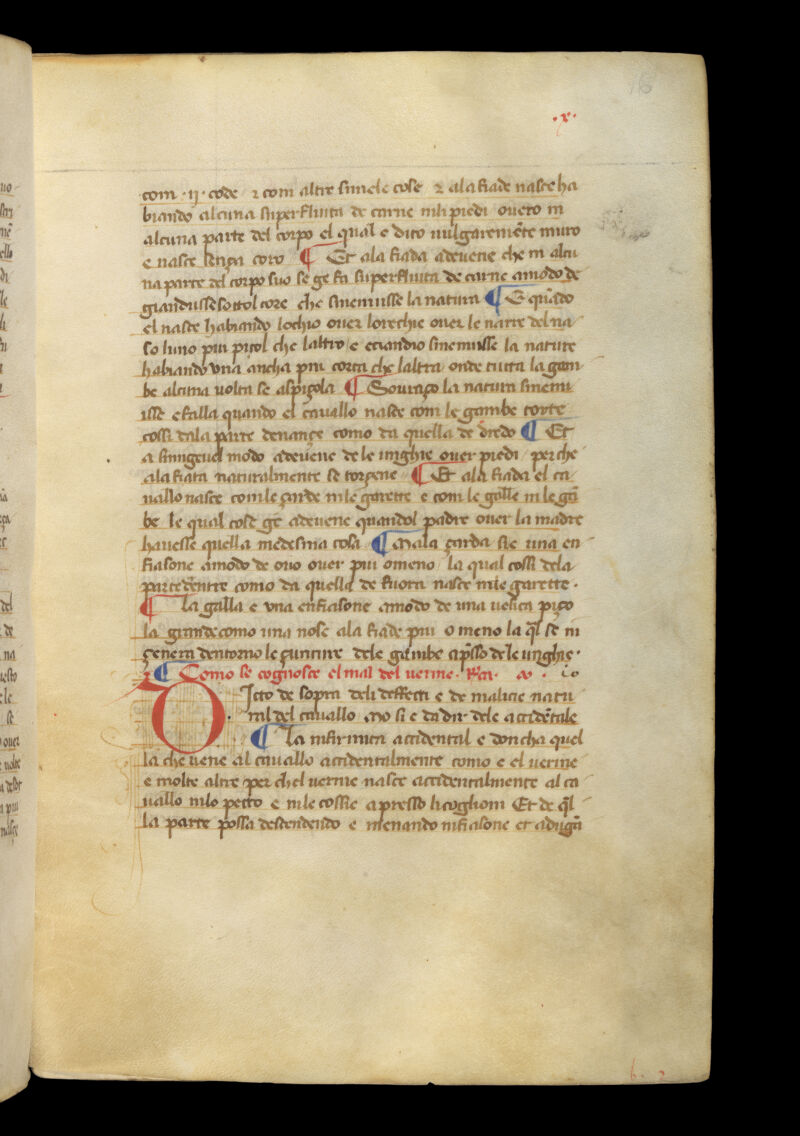 16
.x.
com .ij. code ⁊ com altre simele cose ⁊ ala fiade nasce ha
biando alcuna superfluita de carne nili piedi overo in
alcuna parte del corpo el qual e dito vulgaremēte muro
e nasce sença coro ¶ Et ala fiada advene che in alcu
na parte del corpo suo se ge fa superfluita de carne amodo de
giandusse sottol core che sinemusse la natura ¶ E quādo
el nasce habiando lochio over lorechie over le narre del na
so luno piu piçol che laltro e eciandio sinemusse la nature
habiando una ancha piu corta che laltra onde tuta la gam
be alcuna volta se aspiçola ¶ Souraço la natura sinemu
isse e falla quando el cavallo nasce com le gambe torte
cossi dala parte denançe como da quella de dredo ¶ Et
a simigevel modo advene de le unghie over piedi perche
ala fiata naturalmente se torçene ¶ Et ala fiada el ca
vallo nasce com le çarde nile garette e com le galle nile gā
be le qual cose ge advene quandol padre over la madre
havesse quella medesma cosa ¶ Mala çarda sie una en
fiasone amodo de ovo over piu omeno la qual cossi dela
parte dentre como da quella de fuora nasce nile garette.
¶ La galla e una enfiasone amodo de una vesica piço
la grande como una nose ala fiade piu o meno la ql se in
çenera dentorno le çunture dele gābe apsso dele unghie.
¶ Como se cognosce el mal del verme. Rca. x. io
Dicto de sopra deli deffecti e de malicie natu
ral del cavallo mo si e da dir dele accidētale
¶ La infirmita accidental e doncha quel
la che vene al cavallo accidentalmente como e el verme
e molte altre per chel verme nasce accidentalmente al ca
vallo nilo petto e nile cossie apresso li coglioni Et de ql
la parte possa descendendo e menando infiasone et adugā
b. 2